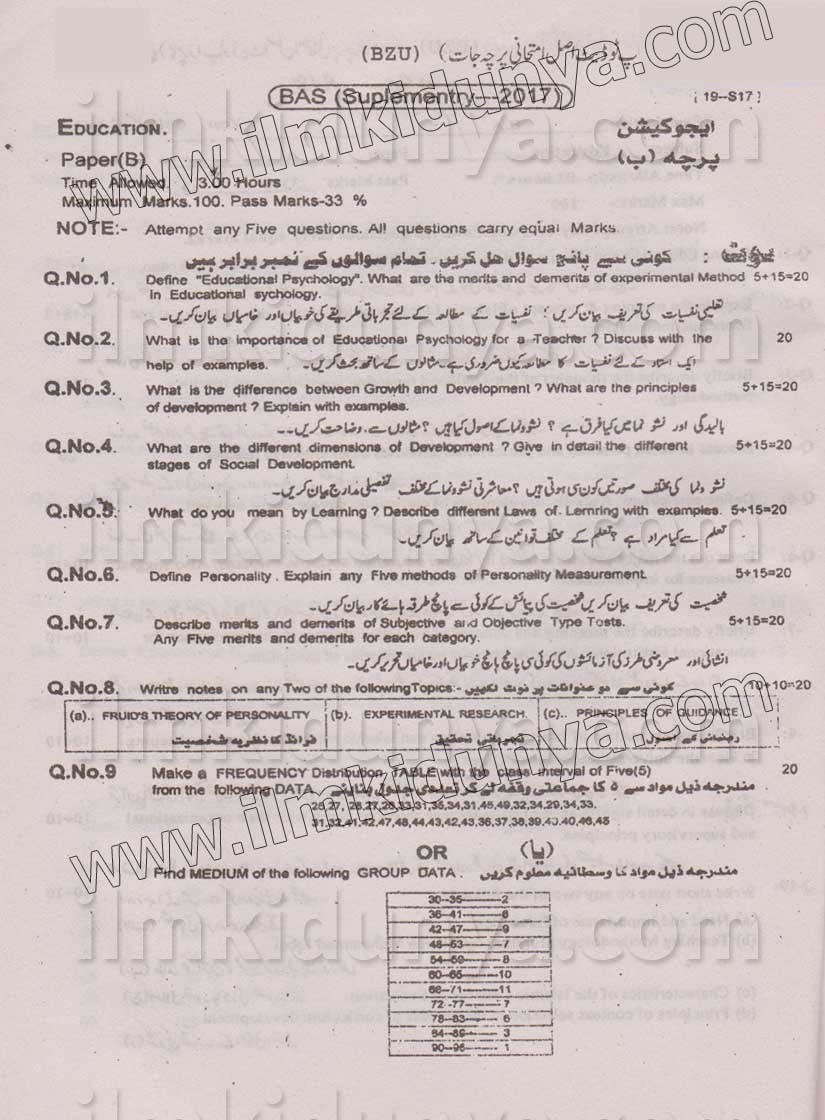 (BZU) (پ ٹو ڈیٹ اصل امتحانی پرچہ جات
BAS (Suplementry--2017)
[ 19--S17 ]
EDUCATION.
ایجوکیشن
Paper(B)
پرچہ (ب)
Time Allowed. 3.00 Hours
Maximum Marks.100. Pass Marks-33 %
NOTE:- Attempt any Five questions. All questions carry equal Marks.
نوٹ : کوئی سے پانچ سوال حل کریں۔ تمام سوالوں کے نمبر برابر ہیں
Q.No.1. Define "Educational Psychology". What are the merits and demerits of experimental Method 5+15=20
in Educational sychology.
تعلیمی نفسیات کی تعریف بیان کریں؛ نفسیات کے مطالعہ کے لئے تجرباتی طریقے کی خوبیاں اور خامیاں بیان کریں۔
Q.No.2. What is the importance of Educational Psychology for a Teacher ? Discuss with the 20
help of examples.
ایک استاد کے لئے نفسیات کا مطالعہ کیوں ضروری ہے۔ مثالوں کے ساتھ بحث کریں۔
Q.No.3. What is the difference between Growth and Development ? What are the principles 5+15=20
of development ? Explain with examples.
بالیدگی اور نشو نما میں کیا فرق ہے ؟ نشوونما کے اصول کیا ہیں ؟ مثالوں سے وضاحت کریں۔۔
Q.No.4. What are the different dimensions of Development ? Give in detail the different 5+15=20
stages of Social Development.
نشو ونما کی مختلف صورتیں کون سی ہوتی ہیں ؟ معاشرتی نشوونما کے مختلف تفصیلی مدارج بیان کریں۔
Q.No.5. What do you mean by Learning ? Describe different Laws of Lernring with examples. 5+15=20
تعلم سے کیا مراد ہے ؟ تعلم کے مختلف قوانین کے ساتھ بیان کریں۔
Q.No.6. Define Personality . Explain any Five methods of Personality Measurement. 5+15=20
شخصیت کی تعریف بیان کریں شخصیت کی پیمائش کے کوئی سے پانچ طرقہ ہائے کار بیان کریں۔
Q.No.7. Describe merits and demerits of Subjective and Objective Type Tests. 5+15=20
Any Five merits and demerits for each category.
انشائی اور معروضی طرز کی آزمائشوں کی کوئی سی پانچ پانچ خوبیاں اور خامیاں تحریر کریں۔
Q.No.8. Writre notes on any Two of the following Topics:- کوئی سے دو عنوانات پر نوٹ لکھیں 10+10=20
(a).. FRUID'S THEORY OF PERSONALITY (b). EXPERIMENTAL RESEARCH. (c).. PRINCIPLES OF GUIDANCE
فرائڈ کا نظریہ شخصیت تجرباتی تحقیق رہنمائی کے اصول
Q.No.9 Make a FREQUENCY Distribution TABLE with the class interval of Five(5) 20
from the following DATA مندرجہ ذیل مواد سے ۵ کا جماعتی وقفہ لے کر تعددی جدول بنائیے
27, 26,27,28,33,31,35,34,31,45,49,32,34,29,34,33.
31,32,41,42,47,48,44,43,42,43,36,37,38,39,40,40,46,45
OR (یا)
Find MEDIUM of the following GROUP DATA. مندرجہ ذیل مواد کا وسطانیہ معلوم کریں
30--35----------2
36--41----------6
42--47----------9
48--53----------7
54--59----------8
60--65----------10
66--71----------11
72--77----------7
78--83----------6
84--89----------3
90--95----------1
www.ilmkidunya.com
www.ilmkidunya.com
ilmkidunya.com
ilmkidunya.com
ilmkidunya.com
ilmkidunya.com
ilmkidunya.com